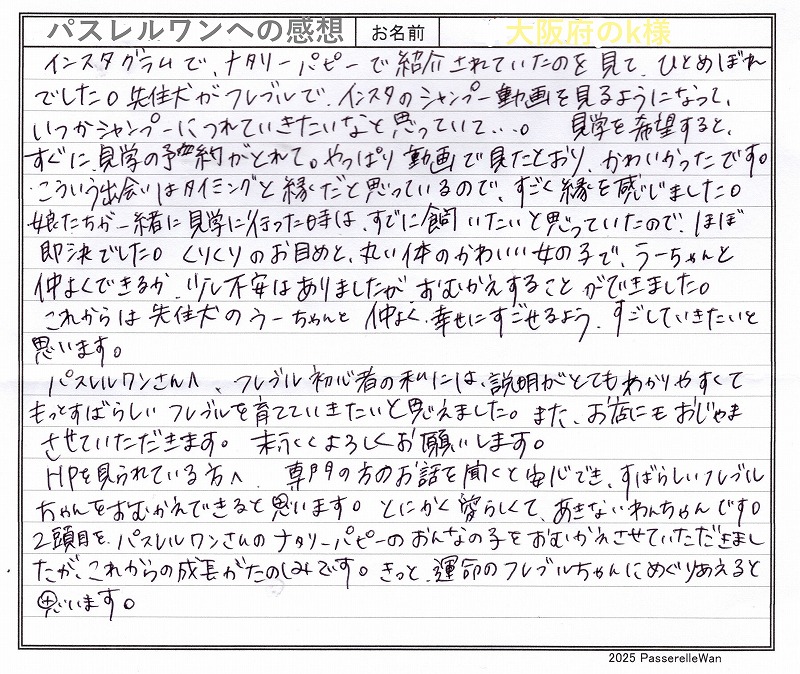 パスレルワンへの感想 お名前 大阪府のk様
インスタグラムで、ナタリーパピーで紹介されていたのを見て、ひとめぼれ
でした。先住犬がフレブルで、インスタのシャンプー動画を見るようになって、
いつかシャンプーにつれていきたいなと思っていて...。 見学を希望すると、
すぐに見学の予約がとれて。やっぱり動画で見たとおり、かわいかったです。
こういう出会いはタイミングと縁だと思っているので、すごく縁を感じました。
娘たちが一緒に見学に行った時は、すでに飼いたいと思っていたので、ほぼ
即決でした。くりくりのお目めと、丸い体のかわいい女の子で、うーちゃんと
仲よくできるか、少し不安はありましたが、おむかえすることができました。
これからは先住犬のうーちゃんと仲よく、幸せにすごせるよう、すごしていきたいと
思います。
パスレルワンさんへ、フレブル初心者の私には、説明がとてもわかりやすくて
もっとすばらしいフレブルを育てていきたいと思えました。また、お店にもおじゃま
させていただきます。末永くよろしくお願いします。
HPを見られている方へ、専門の方のお話を聞くと安心でき、すばらしいフレブル
ちゃんをおむかえできると思います。とにかく愛らしくて、あきないわんちゃんです。
2頭目を、パスレルワンさんのナタリーパピーのおんなの子をおむかえさせていただきまし
たが、これからの成長がたのしみです。きっと、運命のフレブルちゃんにめぐりあえると
思います。
2025 PasserelleWan